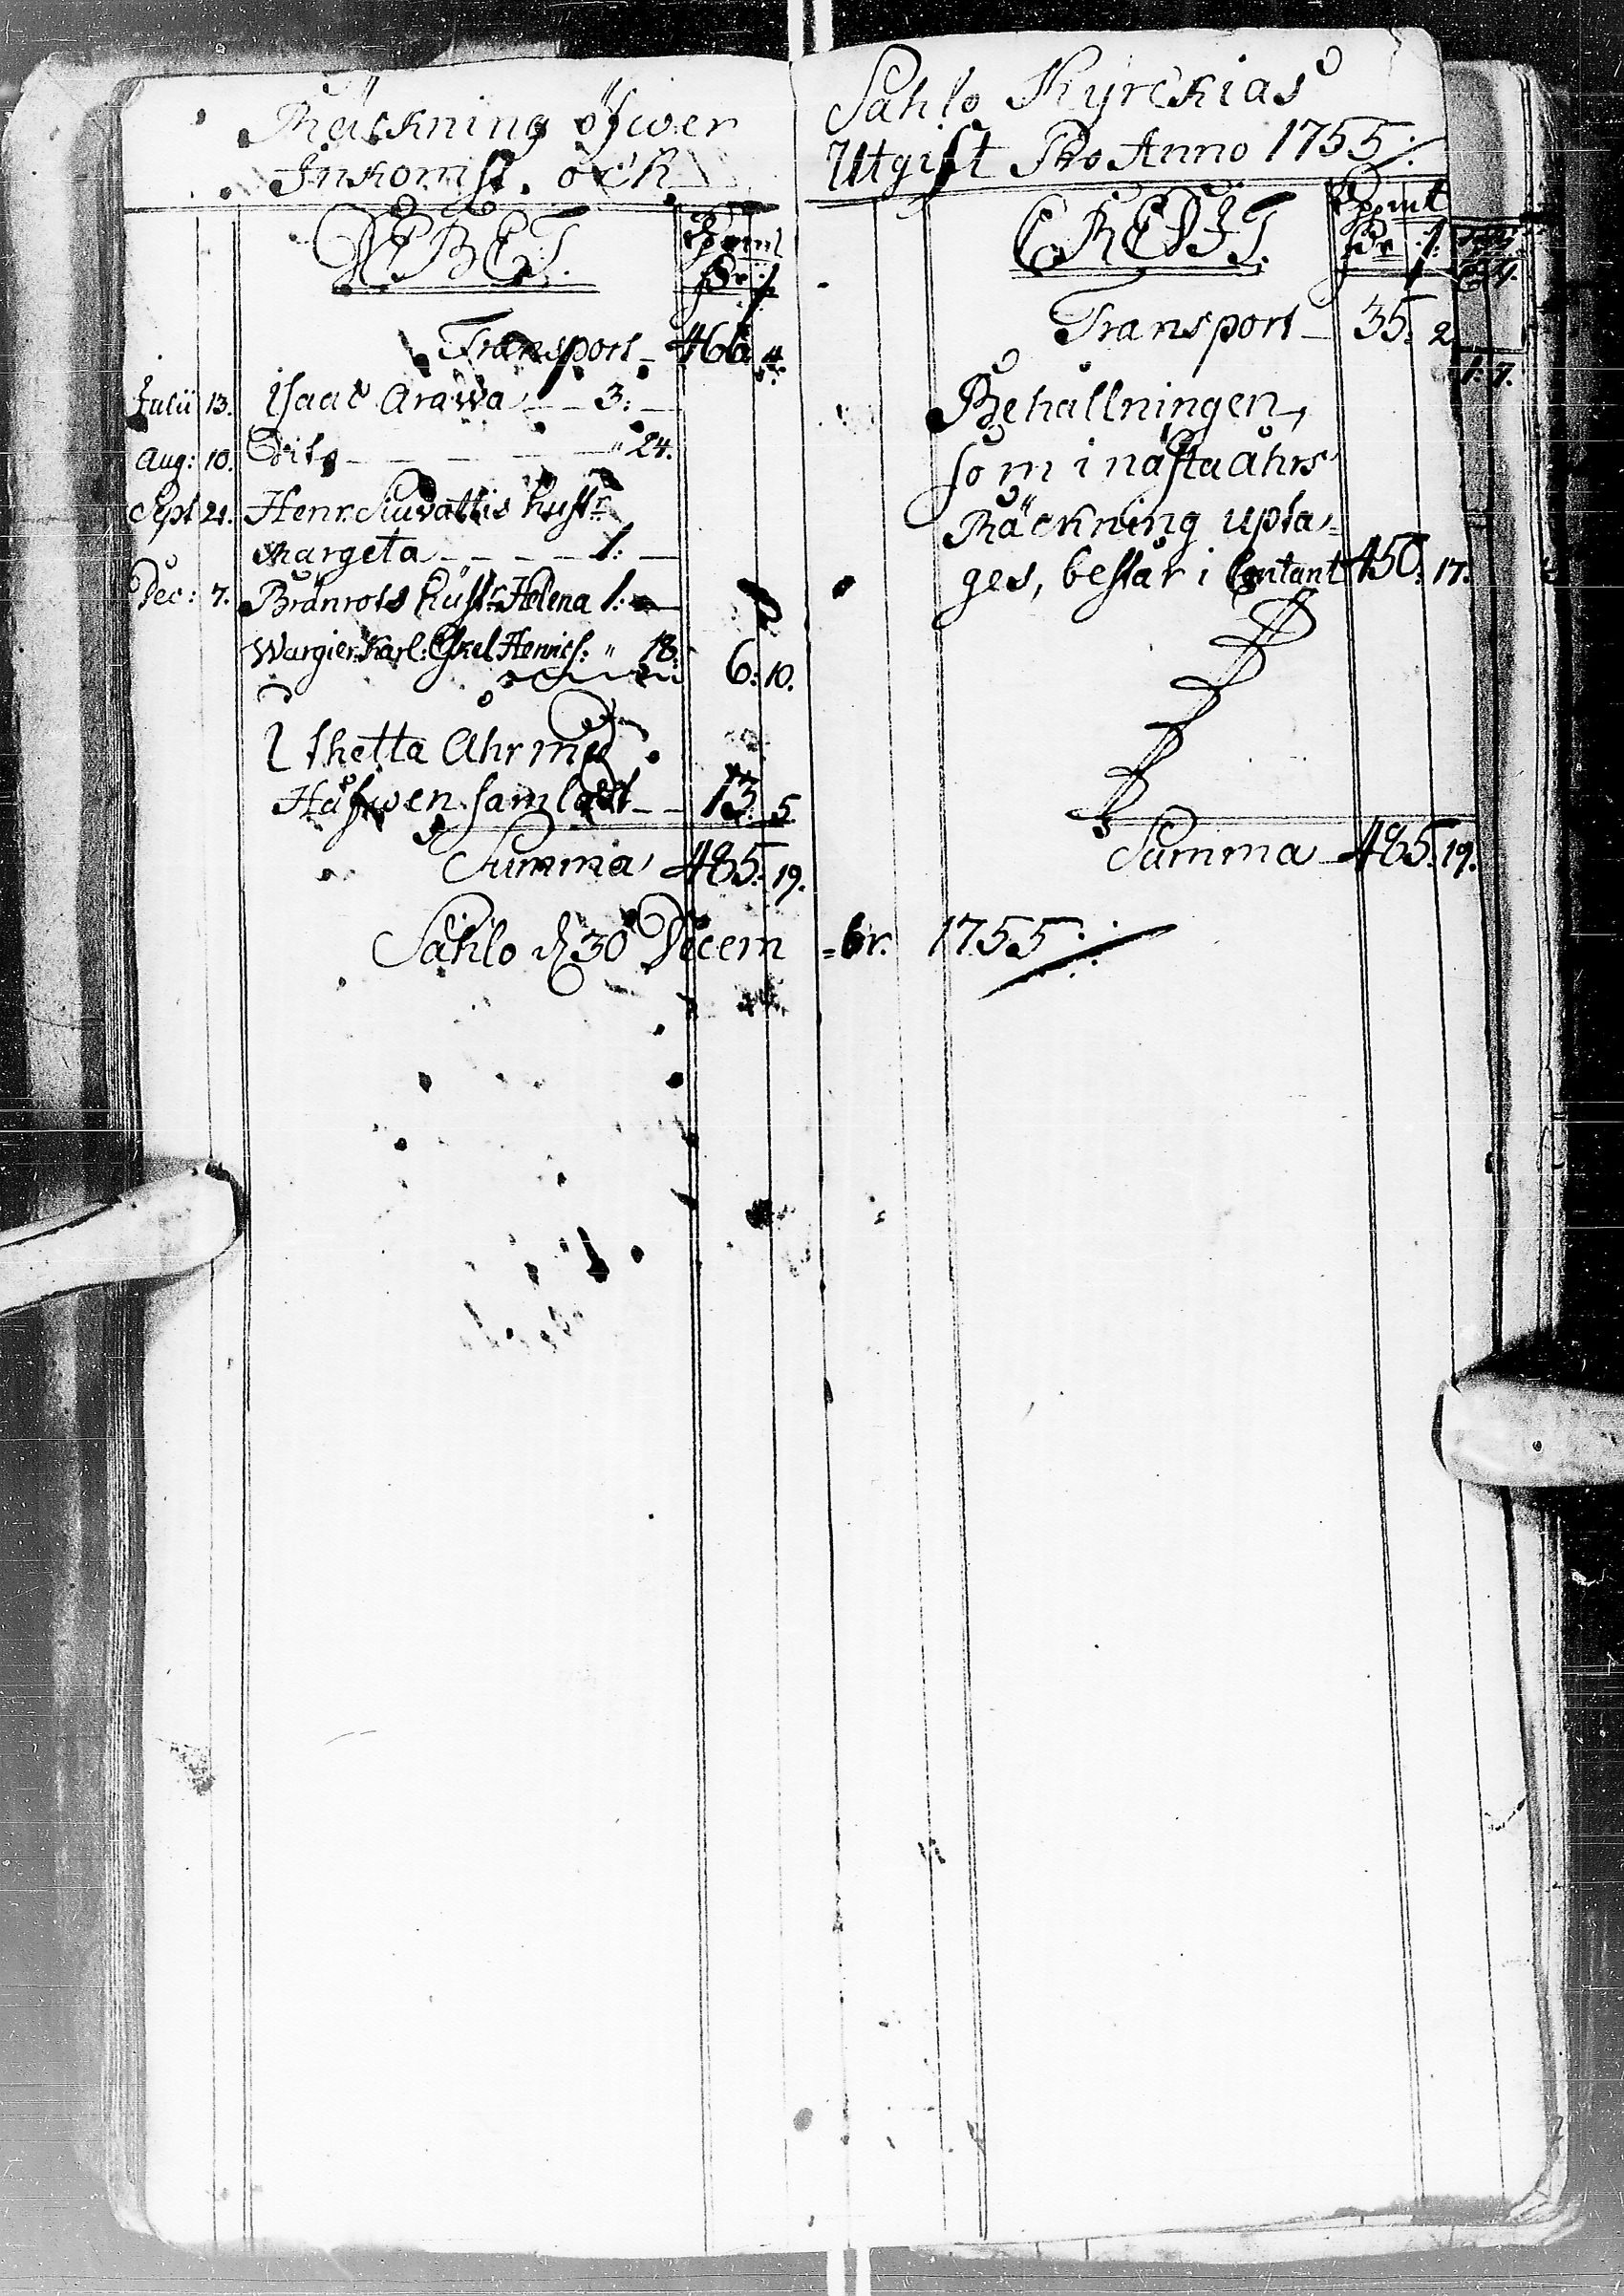 Räckning öfwer
Inkomst. och
DEBET.
Kopmt
dr :/
Transport - 466 4.
Julii 13. Isaac Arawa - - 3: -
Aug: 10. Dito - - - - - " 24.
Sept 21. Henr. Siuvattis hustr
Margeta - - - - 1: -
Dec: 7. Bränrots hustr Helena 1: -
Wargier: Karl: Eskel Henrics: " 18: 6: 10.
I thetta Ahr med
Håfwen samladt - - 13: 5.
Summa 485: 19.
Sahlo d 30 Decem
Sahlo Kyrckias
Utgift Pro Anno 1755:
CREDIT.
Kopmt
dr :/:
Transport - 35: 2
Behållningen,
som i nästa åhrs
Räckning upta=
ges, består i Contant 450: 17.
Summa - 485: 19.
=br. 1755:
1: 7.